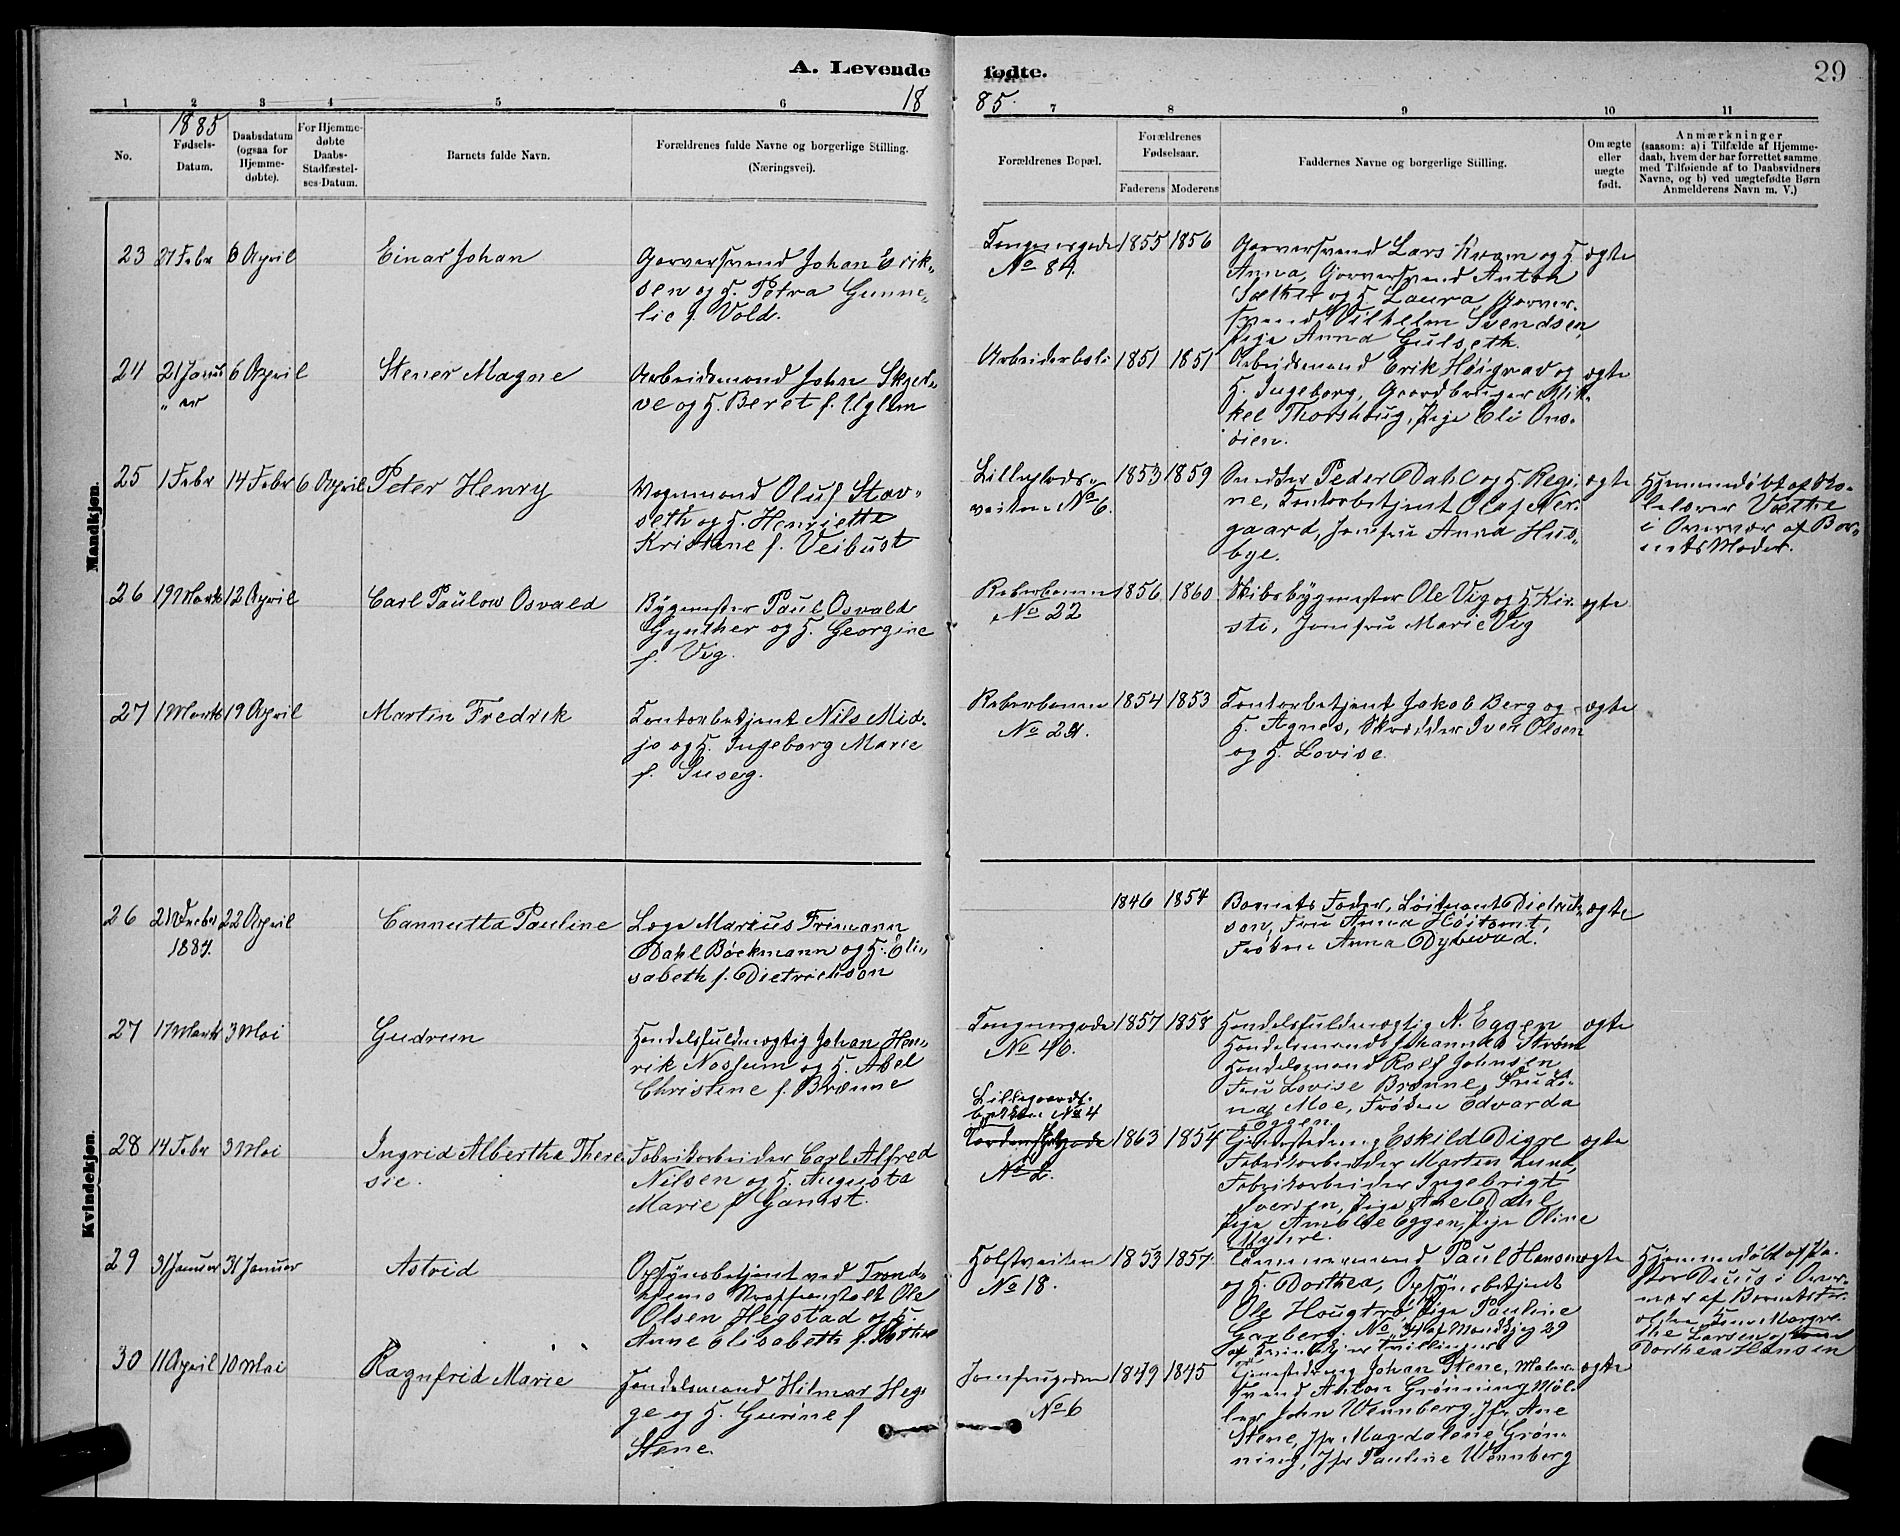 A. Levende fødte.
29
1885.
1 2 3 4 5 6 7 8 9 10 11
No.
1885
Fødsels-
Datum.
Daabsdatum
(ogsaa for
Hjemme-
døbte).
For Hjemme-
døbte
Daabs-
Stadfæstel-
ses-Datum.
Barnets fulde Navn.
Forældrenes fulde Navne og borgerlige Stilling.
(Næringsvei).
Forældrenes Bopæl.
Forældrenes
Fødselsaar.
Faderens Moderens
Faddernes Navne og borgerlige Stilling.
Om ægte
eller
uægte
født.
Anmærkninger
(saasom: a) i Tilfælde af Hjemme-
daab, hvem der har forrettet samme
med Tilføiende af to Daabsvidners
Navne, og b) ved uægtefødte Børn
Anmelderens Navn m. V.)
Mandkjøn.
23 27 Febr 6 April
Einar Johan
Garversvend Johan Erik-
sen og H. Petra Gunne-
lie f. Vold.
No 84.
1855 1856
Garversvend Lars Kvam og H.
Anna, Garversvend Anton
Sæther og H Laura, Garver-
svend Vilhelm Svendsen,
Pige Anna Gulseth.
ægte
24 21 Janu-
ar 6 April
Stener Magne
Arbeidsmand John Skjel-
ve og H. Beret f. Uglem
Arbeiderboli
1851 1851
Arbeidsmand Erik Høigrav og
H. Ingeborg, Gaardbruger Mik-
kel Thorshaug, Pige Eli Ons-
øien.
ægte
25 1 Febr 14 Febr 6 April
Peter Henry
Vognmand Oluf Stav-
seth og H. Henriette
Kristine f. Veibust
Lillegårds-
veiten No 6.
1853 1859
Snedker Peder Dahl og H Regi-
ne, Kontorbetjent Olaf Ner-
gaard, Jomfru Anna Hus-
bye.
ægte
Hjemmedøbt af Sko-
lelærer Væthe
i Overvær af Bar-
nets Moder.
26 19 Marts 12 April
Carl Paulow Osvald
Bygmester Paul Osvald
Gynther og H. Georgine
f. Vig.
Reberbanen
No 22
1856 1860
Skibsbygmester Ole Vig og H Kir-
sti, Jomfru Marie Vig
ægte
27 1 Marts 19 April
Martin Fredrik
Kontorbetjent Nils Mid-
jo og H. Ingeborg Marie
f. Suseg.
Reberbanen
No 24.
1854 1853
Kontorbetjent Jakob Berg og
H. Agnes, Skrædder Iver Olsen
og H. Lovise.
ægte
Kvindekjøn.
26 21 Decbr
1884. 22 April
Cannutta Pauline
Læge Marius Frimann
Dahl Bøckmann og H. Eli-
sabeth f. Dietrichson
1846 1854
Barnets Fader, Løitnant Dietrich-
son, Fru Anna Høitomt,
Frøken Anna Dybwad.
ægte
27 17 Marts 3 Mai
Gudrun
Handelsfuldmægtig Johan Hen-
rik Nossum og H. Abel
Christine f. Brænne
No 46.
1857 1858
Handelsfuldmægtig N. Eggen
Handelsmand Johannes Strøm
Handelsmand Rolf Johnsen
Fru Lovise Brænne, Fru Li-
na Moe, Frøken Edvarda
Eggen
ægte
28 14 Febr 3 Mai
Ingrid Albertha There-
sie.
Fabrikarbeider Carl Alfred
Nilsen og H. Augusta
Marie f Gankst.
Lillegaards-
bakken No 4
Tordenskjoldsgade
No 2.
1863 1854
Gjørtler Eskild Digre
Fabrikarbeider Morten Lund,
Fabrikarbeider Ingebrigt
Sversen, Pige Ane Dahl
Pige Amalie Eggen, Pige Oline
Myhre.
ægte
29 31 Januar 31 Januar
Astrid
Opsynsbetjent ved Trond-
hjems Straffanstalt Ole
Olsen Hegstad og H.
Anne Elisabeth f. Sæther
Holstveiten
No 18.
1853 1857
Tømmermand Paul Hansen
og H. Dorthea, Opsynsbetjent
Ole Hougtrø, Pige Pauline
Garberg. No 24 af Mandkjøn og 29
af Kvindekjøn Tvillinger
ægte
Hjemmedøbt af Pa-
stor Duus i Over-
vær af Barnets Far
og Fru Margre-
the Larsen og
Dorthea Hansen
30 11 April 10 Mai
Ragnfrid Marie
Handelsmand Hilmar Heg-
ge og H. Gurine f
Stene.
Jomfrugaden
No 6
1849 1845
Johan Stene, Maler-
svend Anton Grønning, Møl-
ler John Wennberg, Jfr Ane
Stene, Jfr Magdalene Grøn-
ning, Jfr Pauline Wennberg
ægte